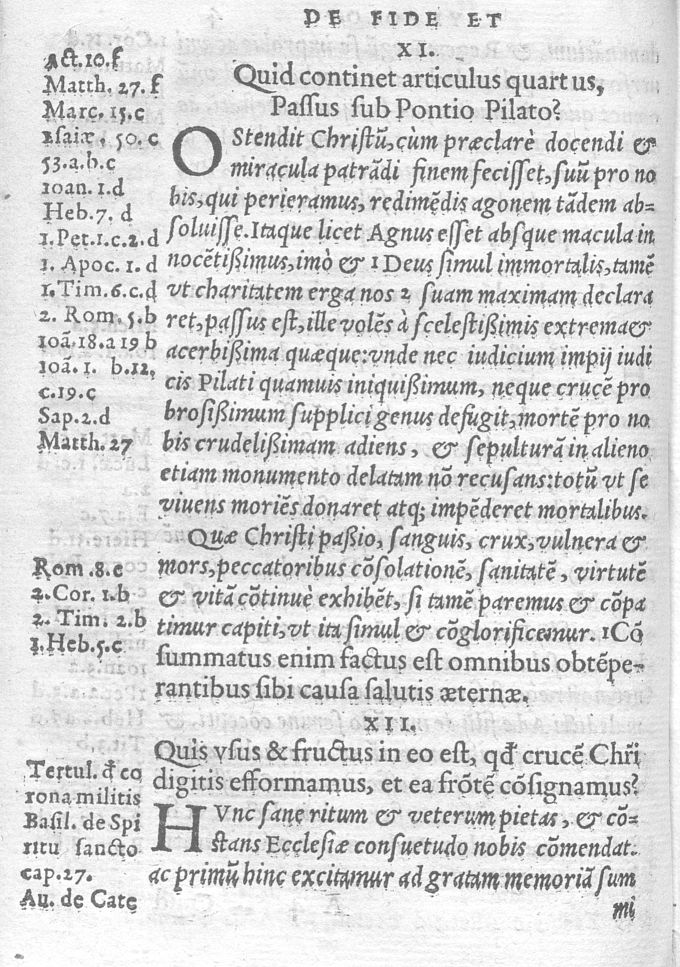 DE FIDE ET
XI.
Quid continet articulus quartus,
Passus sub Pontio Pilato?
OStendit Christũ, cùm præclarè docendi &
miracula patrãdi finem fecisset, suũ pro no
bis, qui perieramus, redimẽdis agonem tãdem ab=
soluisse. Itaque licet Agnus esset absque macula in
nocẽtißimus, imò & 1 Deus simul immortalis, tamẽ
vt charitatem erga nos 2 suam maximam declara
ret, passus est, ille volẽs à scelestißimis extrema &
acerbißima quæque: vnde nec iudicium impij iudi
cis Pilati quamuis iniquißimum, neque crucẽ pro
brosißimum supplici genus defugit, mortẽ pro no
bis crudelißimam adiens, & sepulturã in alieno
etiam monumento delatam nõ recusans: totũ vt se
viuens moriẽs donaret atq; impẽderet mortalibus.
Quæ Christi paßio, sanguis, crux, vulnera &
mors, peccatoribus cõsolationẽ, sanitatẽ, virtutẽ
& vitã cõtinuè exhibẽt, si tamẽ paremus & cõpa
timur capiti, vt ita simul & cõglorificemur. 1Cõ
summatus enim factus est omnibus obtẽpe-
rantibus sibi causa salutis æternæ.
XII.
Quis vsus & fructus in eo est, qđ crucẽ Chri̇̃
digitis efformamus, et ea frõtẽ cõsignamus?
HVnc sanè ritum & veterum pietas, & cõ=
stans Ecclesiæ consuetudo nobis cõmendat.
ac primũ hinc excitamur ad gratam memoriã sum
mi
Act. 10. f
Matth. 27. f
Marc. 15. c
Isaiæ, 50. c
53. a. b. c
Ioan. 1. d
Heb. 7. d
1. Pet. 1. c. 2. d
1. Apoc. 1. d
1. Tim. 6. c. d
2. Rom. 5. b
Ioã. 18. a 19 b
Ioã. 1. b. 12,
c. 19. c
Sap. 2. d
Matth. 27
Rom. 8. e
2. Cor. 1. b
2. Tim. 2. b
1. Heb. 5. c
Tertul. đ co
rona militis
Basil. de Spi
ritu sancto
cap. 27.
Au. de Cate